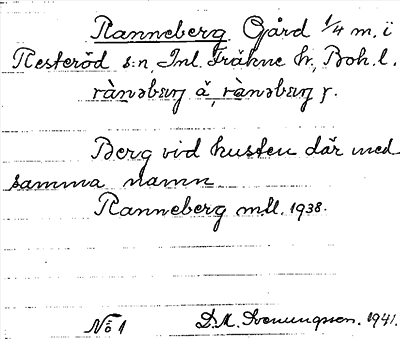 Ranneberg Gård 1/4 m. i
Resteröd s:n, Inl. Fräkne hr., Boh. l.
rànəbærj å, rànəbærj r.
Berg vid kusten där med
samma namn
Ranneberg mtl. 1938.
No 1 D. M. Svenungsson. 1941.